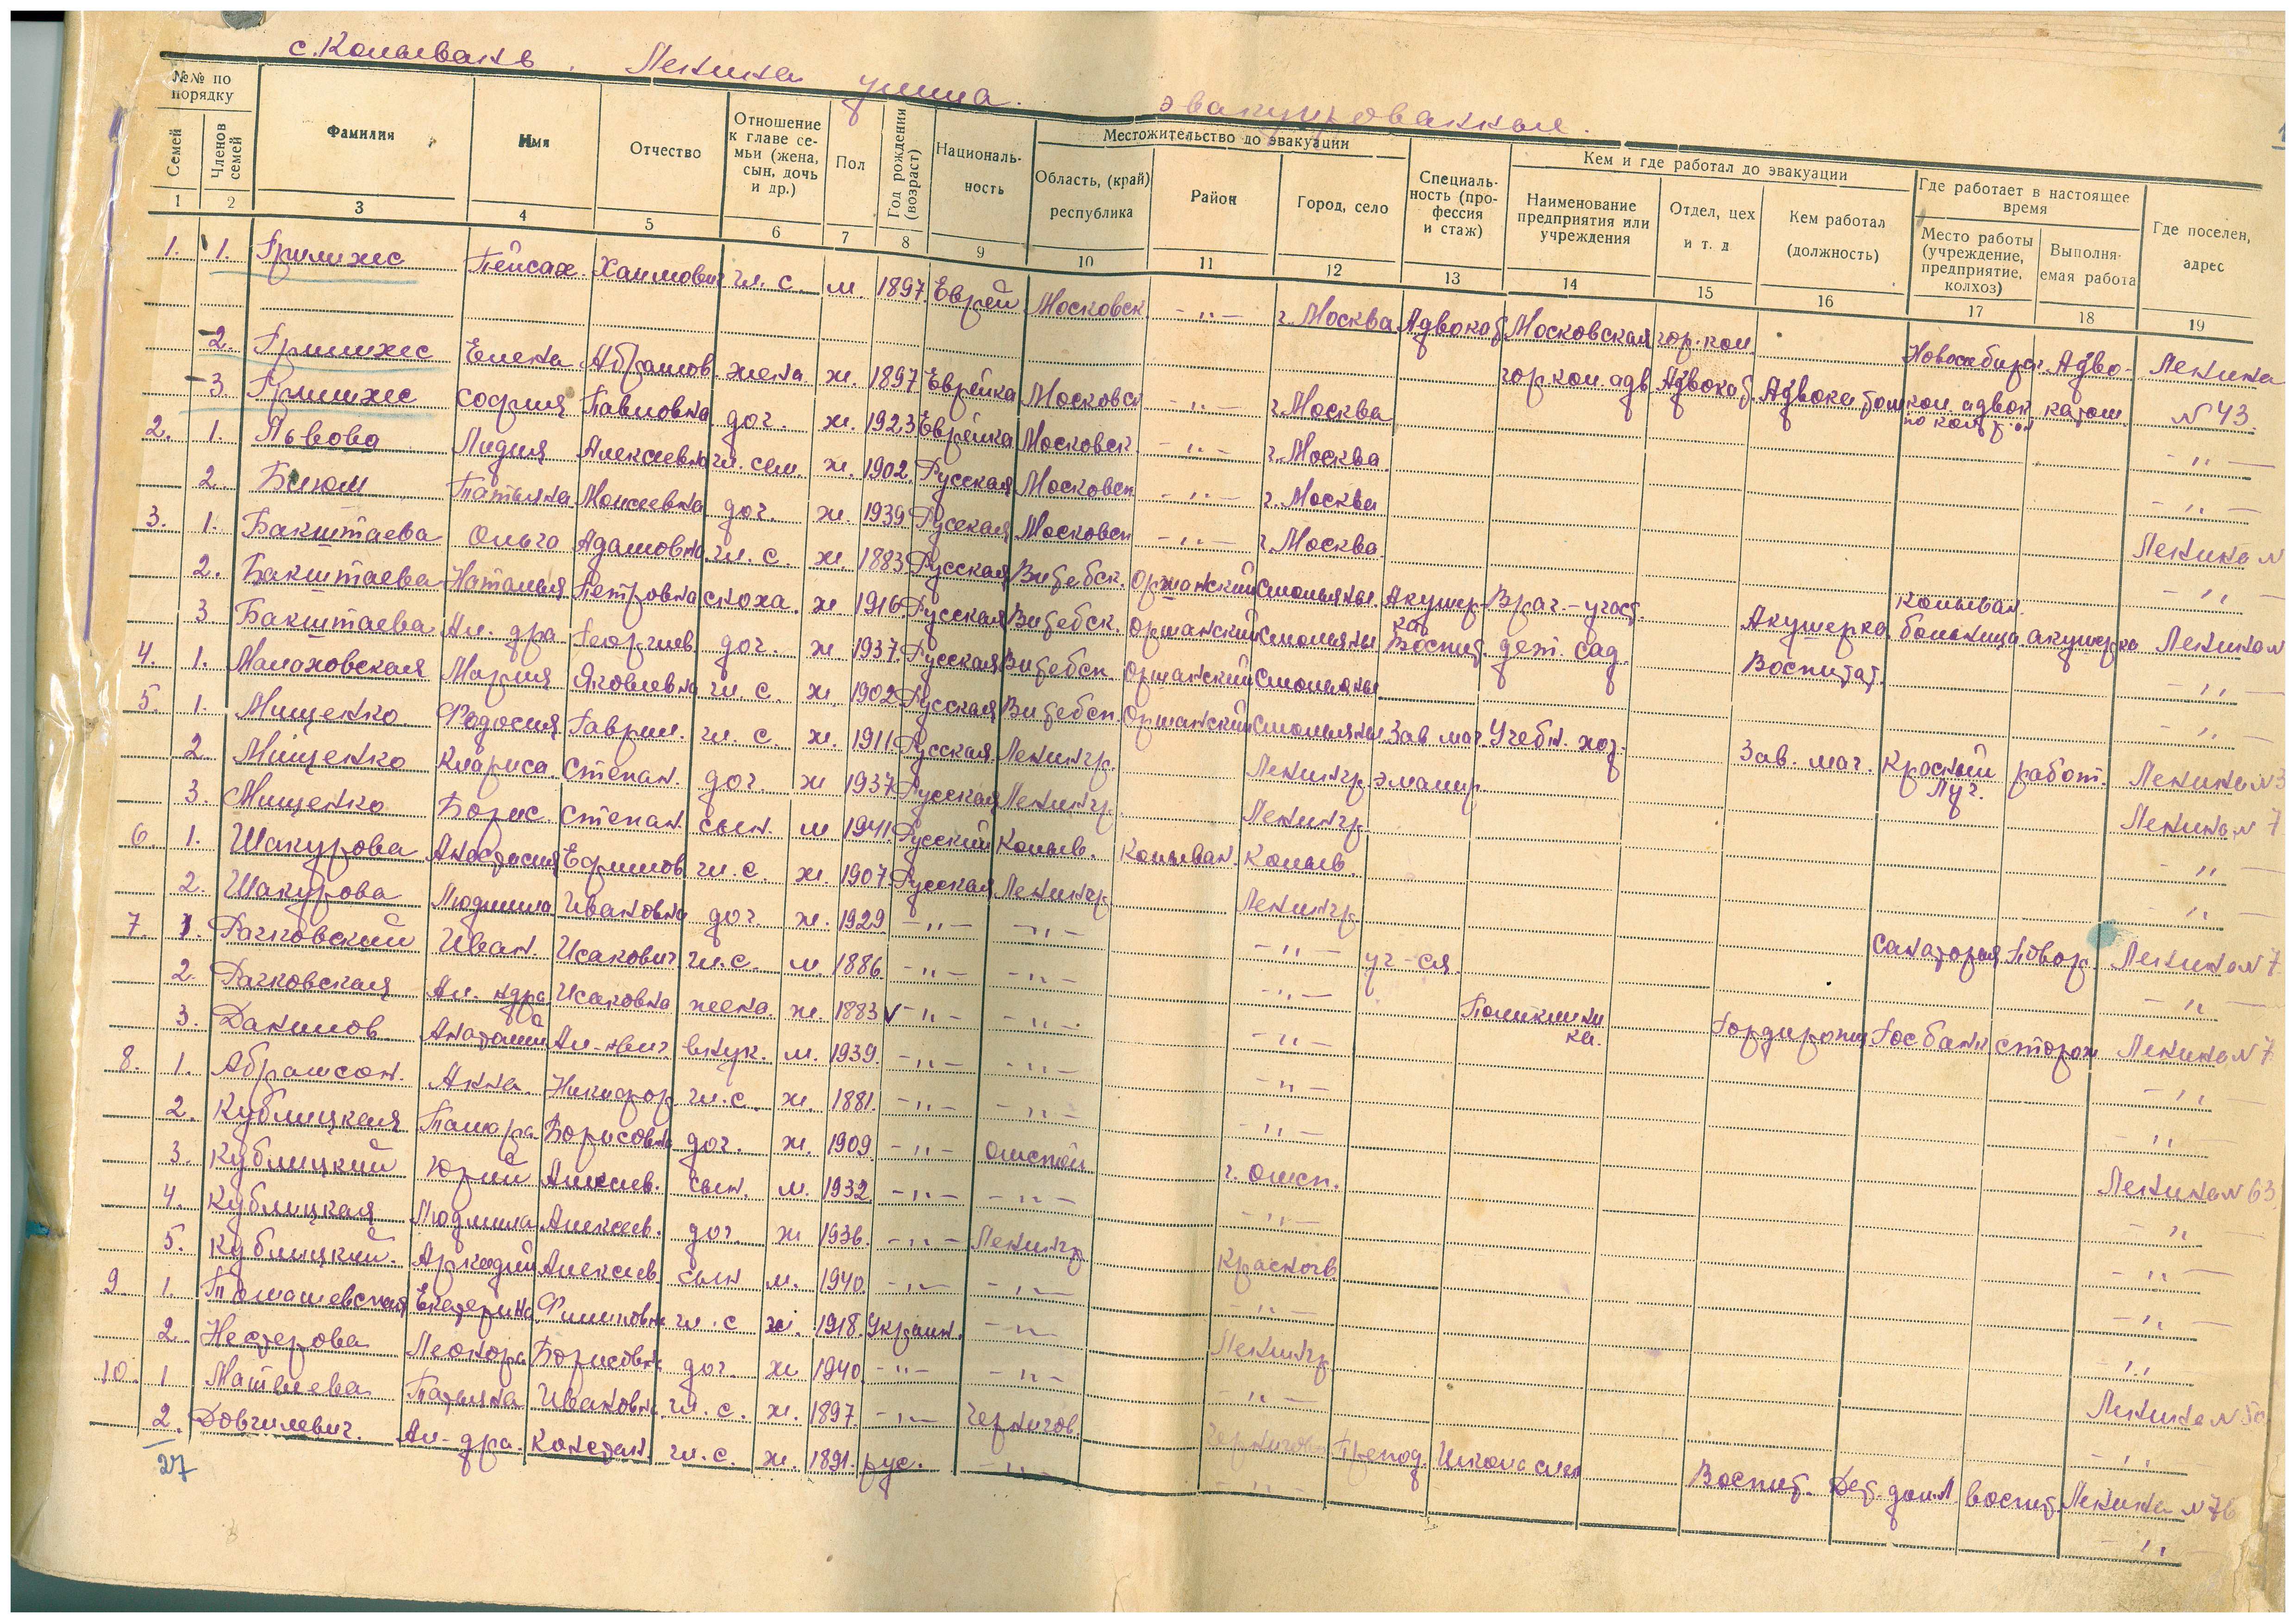 с. Колывань. Ленина улица. эвакуированные.
№№ по порядку
Семей
Членов семей
Фамилия
Имя
Отчество
Отношение к главе семьи (жена, сын, дочь и др.)
Пол
Год рождения (возраст)
Националь-ность
Местожительство до эвакуации
Область, (край) республика
Район
Город, село
Специаль-ность (про-фессия и стаж)
Кем и где работал до эвакуации
Наименование предприятия или учреждения
Отдел, цех и т. д
Кем работал (должность)
Где работает в настоящее время
Место работы (учреждение, предприятие, колхоз)
Выполня-емая работа
Где поселен, адрес
1 2 3 4 5 6 7 8 9 10 11 12 13 14 15 16 17 18 19
1. 1. Грилихес Пейсах. Хаимович гл. с. м. 1897 Еврей Московск -"- г. Москва Адвокат Московская гор. кол. адв. Адвокат. Адвокатом кол. адвок катом. Ленина N 43.
2. Грилихес Елена Абрамов. жена ж. 1897 Еврейка Московск -"- г. Москва -"-
3. Грилихес София Павловна доч. ж. 1923 Еврейка Московск. -"- г. Москва. -"-
2. 1. Львова Лидия Алексеевна гл. сем. ж. 1902 Русская Московск -"- г. Москва Ленина N
2. Блюм Татьяна Моисеевна доч. ж. 1939 Русская Московск -"- г. Москва. -"-
3. 1. Бакштаева Ольга Адамовна гл. с. ж. 1883 Русская Витебск. Оршанский Смольяны. Акушер-ка Врач.-участ. Акушерка Колыван. больница акушерка Ленина N
2. Бакштаева Наталья Петровна сноха. ж 1916 Русская Витебск. Оршанский Смольяны Воспит. дет. сад. Воспитат. -"-
3 Бакштаева Ал. дра Георгиев доч. ж. 1937. Русская Витебск Оршанский Смольяны -"-
4. 1. Малаховская Мария Яковлевна гл. с. ж. 1902 Русская Витебск. Оршанский Смольяны Зав. маг. Учебн. хоз. Зав. маг. Красный Луч. работ. Ленина N 3
5. 1. Мищенко Федосия Гаврил. гл. с. ж. 1911 Русская. Ленингр. Ленингр эмалир. Ленина N 7
2. Мищенко Клариса Степан. доч. ж 1937 Русская Ленингр. Ленингр. -"-
3. Мищенко Борис Степан. сын. м 1941. Русский Колыв. Колыван. Колыв. -"-
6. 1. Шакурова Анастасия Ефимов гл. с. ж. 1907 Русская Ленингр Ленингр. Санатория Повор. Ленина N 7
2. Шакурова Людмила Ивановна доч. ж. 1929. -"- -"- -"- уч-ся. -"-
7. 1. Рачковский Иван. Исакович гл. с. м. 1886. -"- -"- -"- Поликлини ка. Гардиробщ Госбанк сторож Ленина N 7
2. Рачковская Ал. ндра Исаковна жена. ж. 1883 -"- -"- -"- -"-
3. Данилов. Анатолий Ал-евич внук. м. 1939. -"- -"- -"- -"-
8. 1. Абрамсон. Анна Никифор гл. с. ж. 1881. -"- -"- -"- Ленина N 63.
2. Кублицкая Тамара Борисовна доч. ж. 1909. -"- -"-
3. Кублицкий Юрий Алексеев. сын. м. 1932. -"- -"- -"- -"-
4. Кублицкая Людмила Алексеев. доч. ж 1936. -"- Ленингр -"-
5. Кублицкий. Аркадий Алексеев. сын м. 1940. -"- -"- -"- -"-
9 1. Томашевская Екатерина гл. с ж. 1918. Украин. -"- Ленингр
2. Нестерова Леонора Борисовна доч. ж 1940. -"- -"- -"- -"-
10. 1 Матвеева Татьяна Ивановна гл. с. ж. 1897. -"- Чернигов. Чернигов Препод. Школа Воспит. Дет. дом. воспит. Ленина N 76
2. Довгилевич. Ал-дра. Констан. гл. с. ж. 1891. рус. -"- -"- -"-
27